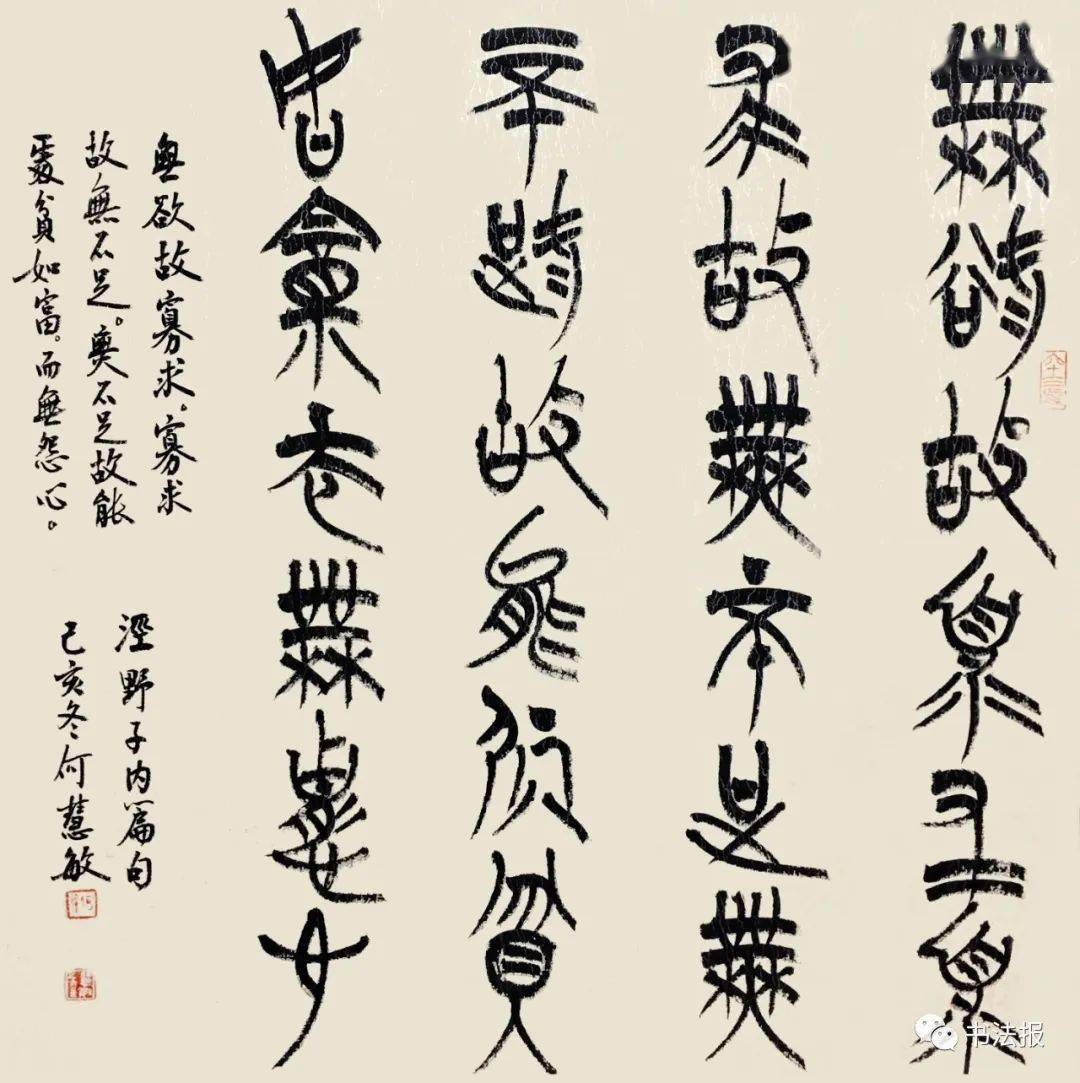 無欲故寡求寡
求故無不足無
不足故能處貧
如富而無怨心
無欲故寡求。寡求
故無不足。無不足故能
處貧如富。而無怨心。
涇野子内篇句
己亥冬何慧敏
书法报